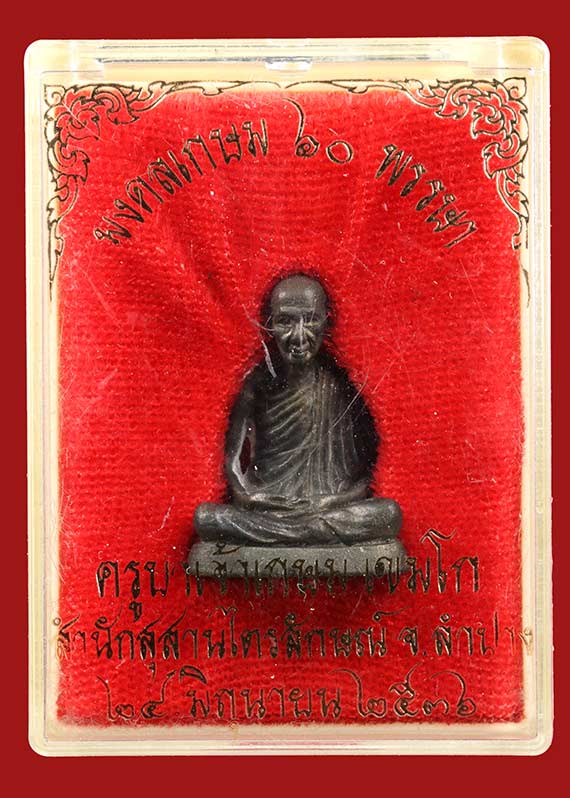 มงคลเกษม ๖๐ พรรษา
ครูบาเจ้าเกษม เขมโก
สำนักสุสานไตรลักษณ์ จ.ลำปาง
๒๔ มิถุนายน ๒๕๓๖